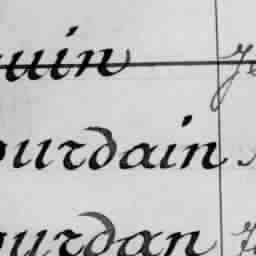 uin
ourdain
ourdan